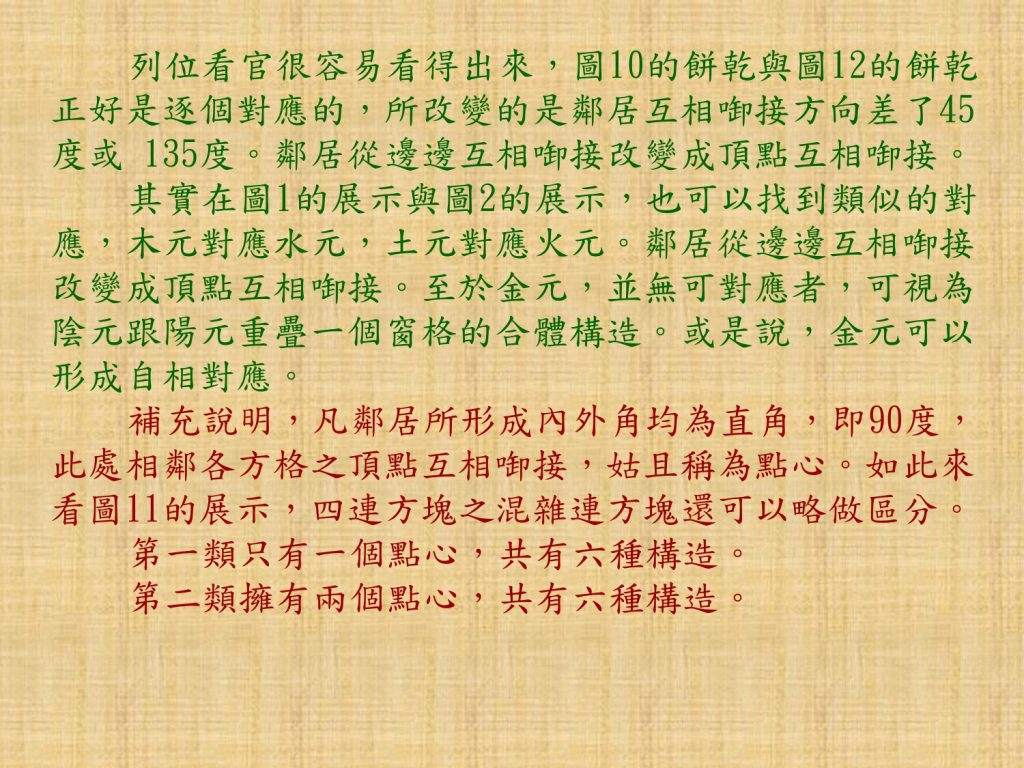 列位看官很容易看得出來，圖10的餅乾與圖12的餅乾
正好是逐個對應的，所改變的是鄰居互相啣接方向差了45
度或 135度。鄰居從邊邊互相啣接改變成頂點互相啣接。
其實在圖1的展示與圖2的展示，也可以找到類似的對
應，木元對應水元，土元對應火元。鄰居從邊邊互相啣接
改變成頂點互相啣接。至於金元，並無可對應者，可視為
陰元跟陽元重疊一個窗格的合體構造。或是說，金元可以
形成自相對應。
補充說明，凡鄰居所形成內外角均為直角，即90度，
此處相鄰各方格之頂點互相啣接，姑且稱為點心。如此來
看圖11的展示，四連方塊之混雜連方塊還可以略做區分。
第一類只有一個點心，共有六種構造。
第二類擁有兩個點心，共有六種構造。